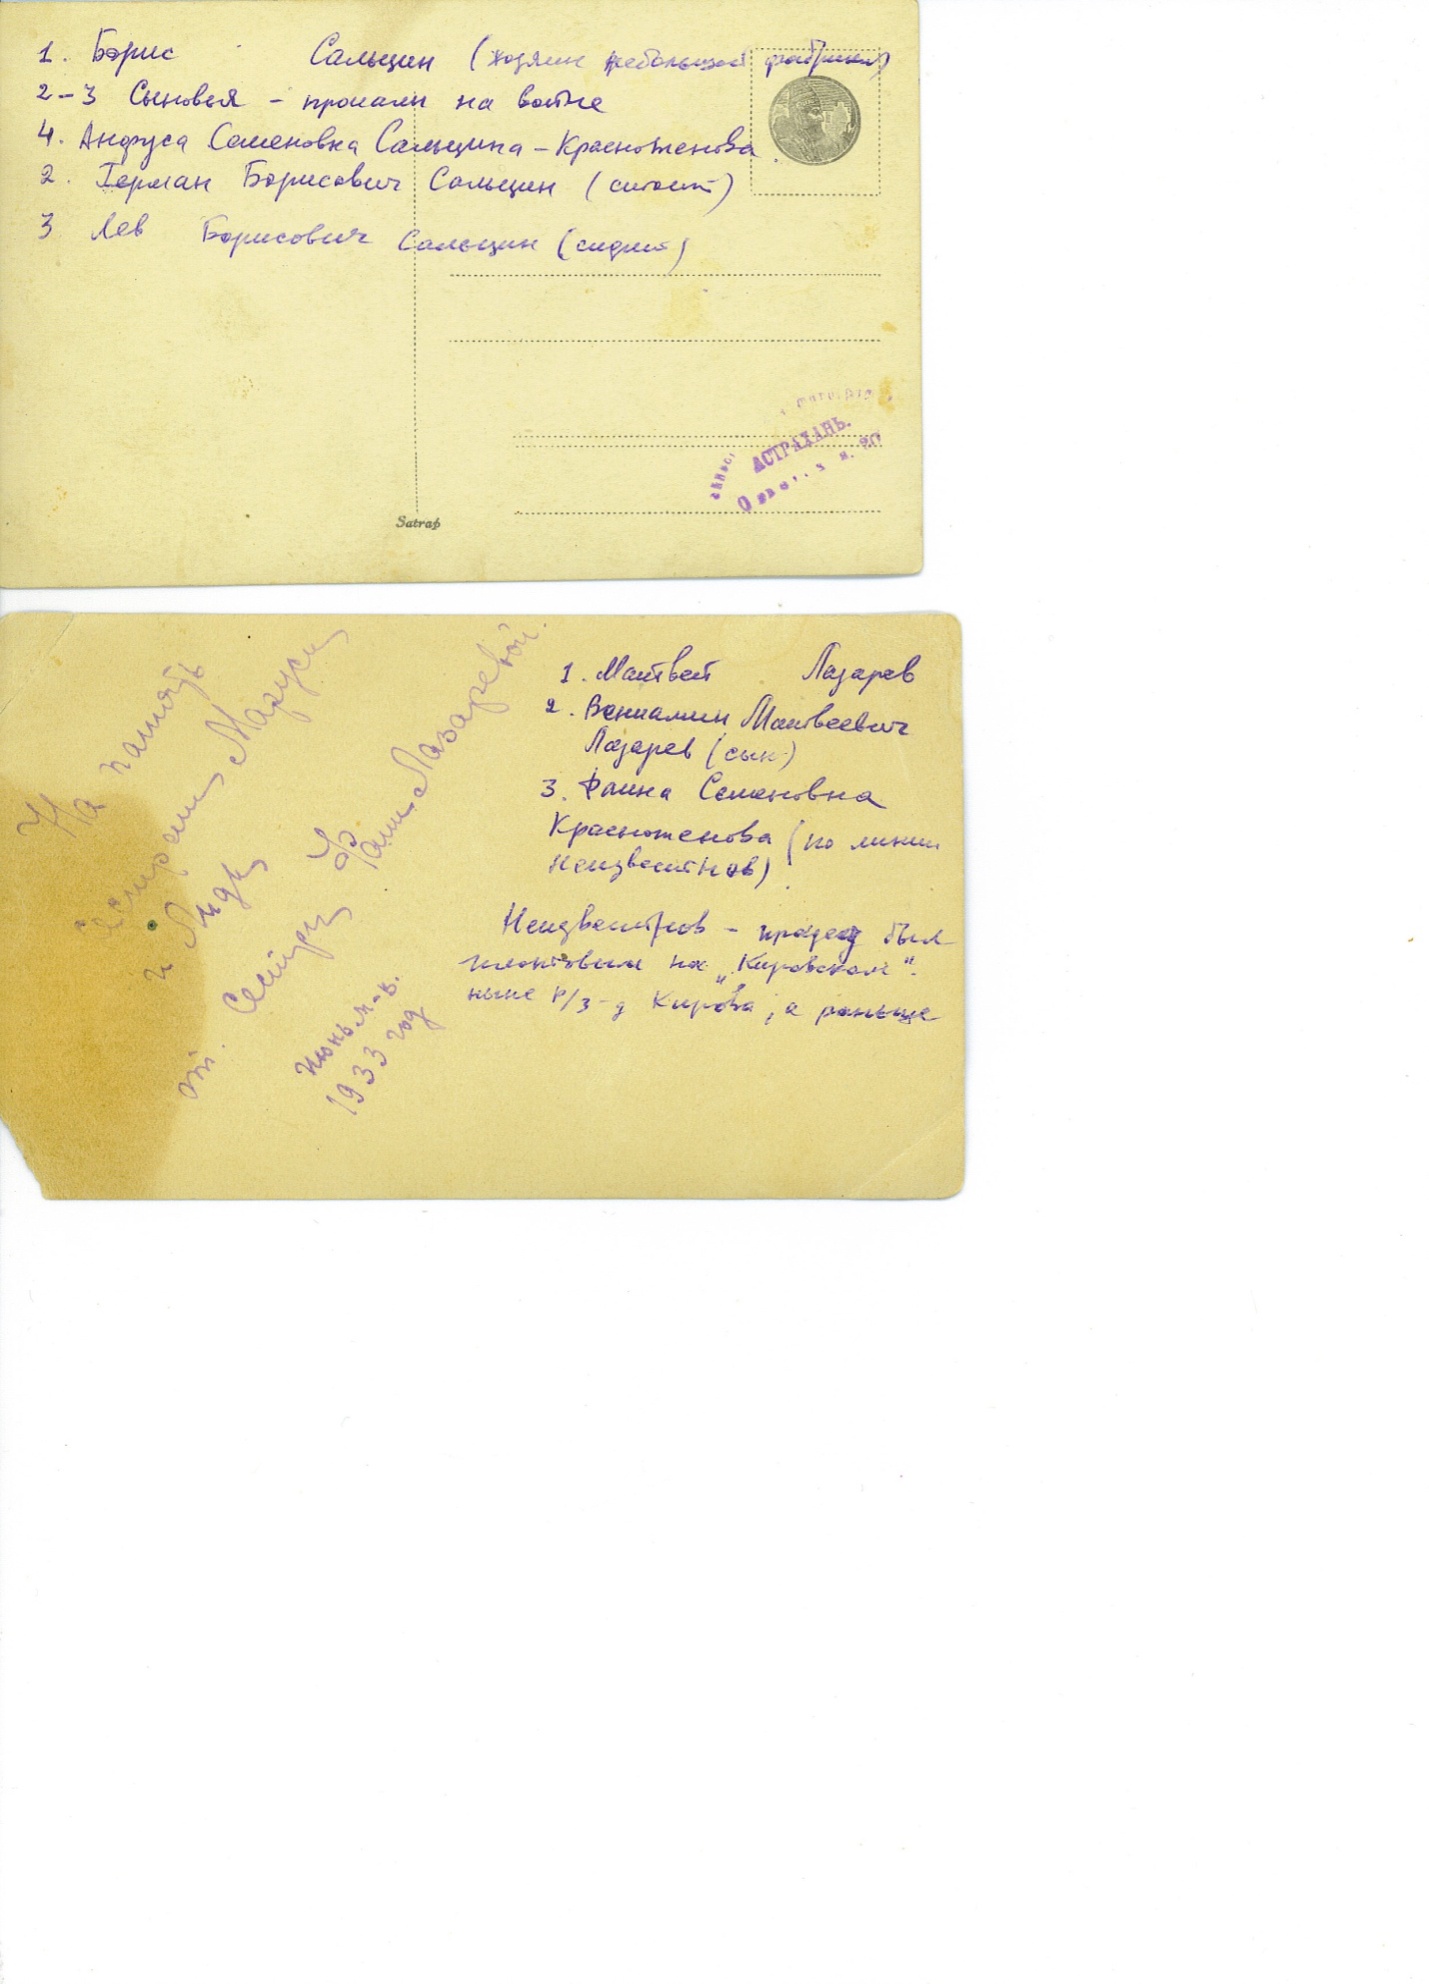 1. Борис Сальцин (хозяин небольшой фабрики)
2-3 Сыновья - пропали на войне
4. Анфуса Семеновна Сальцина-Красноженова
2. Герман Борисович Сальцин (стоит)
3 Лев Борисович Сальцин (сидит)
АСТРАХАНЬ.
Satrap
На память
сестрам Маруси
и Лиды
от. Сестры Фаи Лазаревой.
Июнь м-ц.
1933 год
1. Матвей Лазарев
2. Вениамин Матвеевич
Лазарев (сын)
3. Фаина Семеновна
Красноженова (по линии
Неизвестнов)
Неизвестнов - прадед был
на "Кировском".
ныне Р/з-д Кирова, а раньше